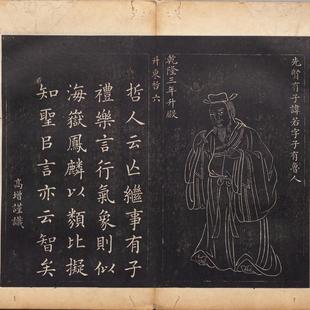 先賢有子諱若字子有魯人
乾隆三年升殿
升東哲六
哲人云亾繼事有子
禮樂言行氣象則似
海嶽鳳麟以類比擬
知聖𠮷言亦云智矣
高增謹識